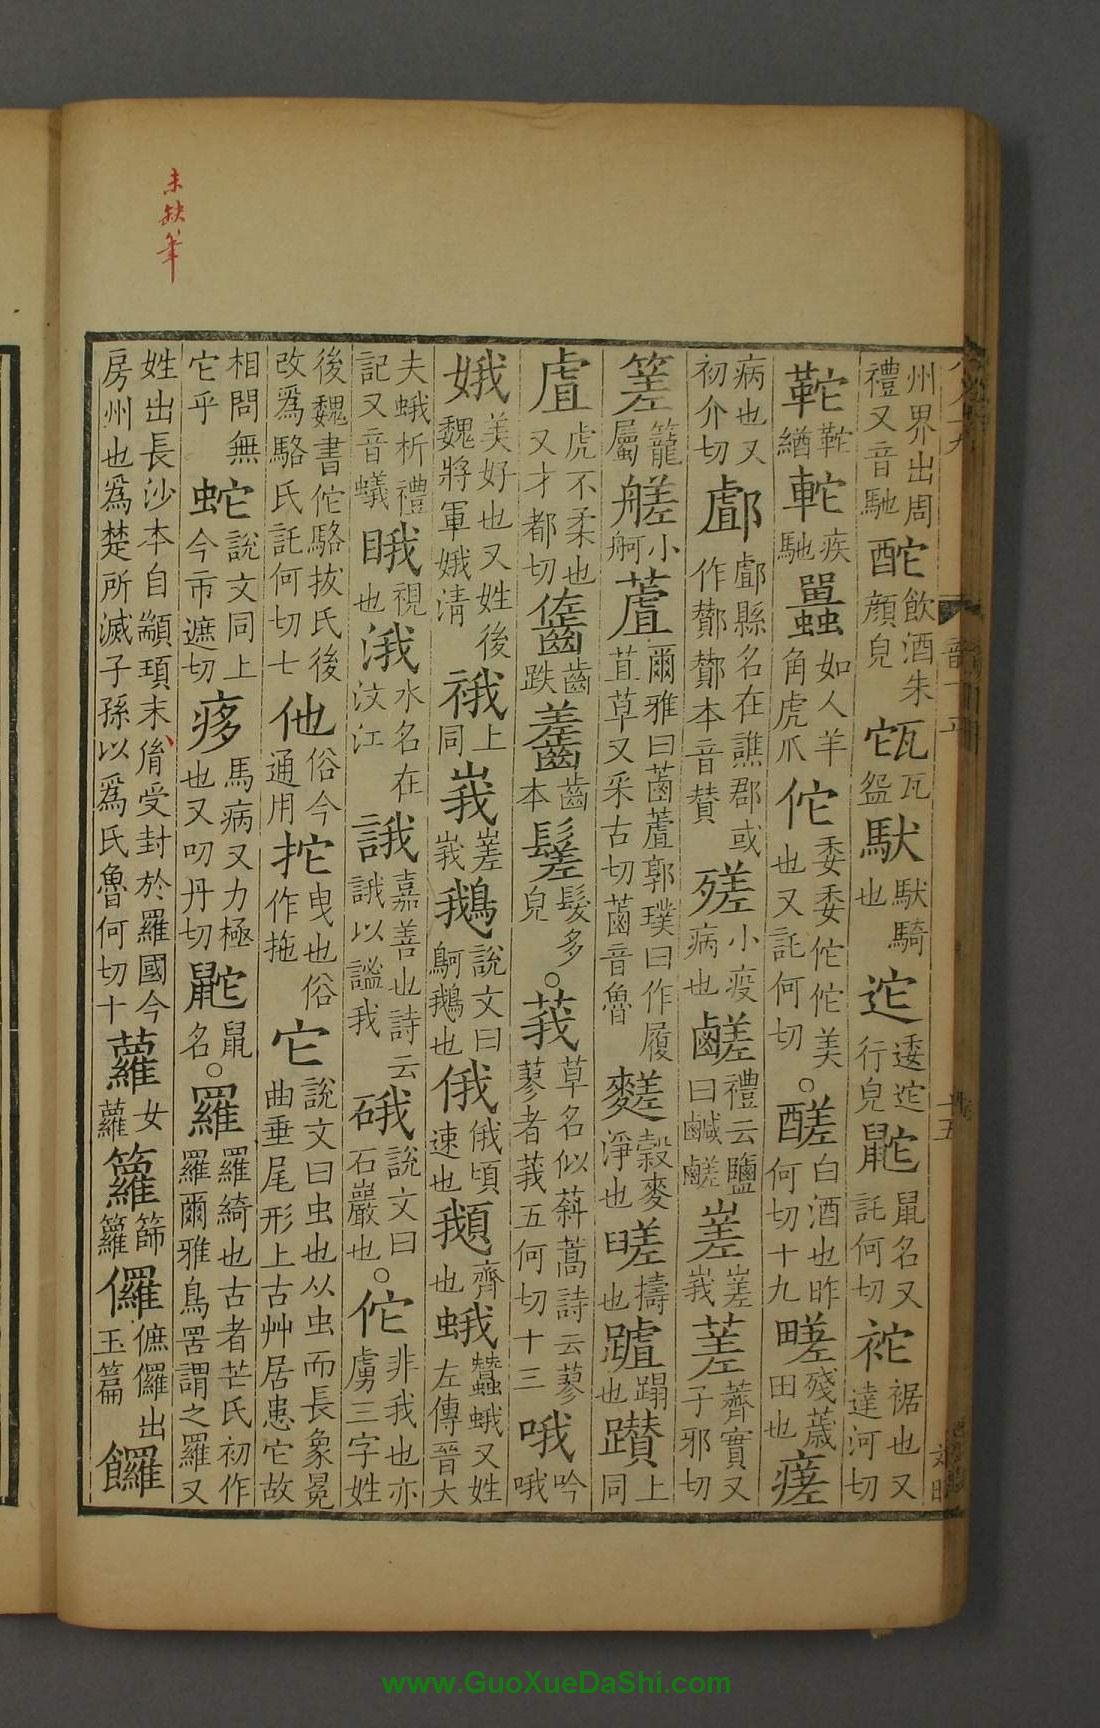 未缺筆
州界出周禮又音馳酡飲酒朱顔皃𤬾瓦盌馱馱騎也迱逶迱行皃鼧鼠名又託何切袉裾也又達河切
鞁鞁緧𨈓疾馳䮾如人羊角虎爪佗委委佗佗美也又託何切○醝白酒也昨何切十九𤲞殘薉田也瘥
病也又初介切酇酇縣名在譙郡或作酇酇本音贊𣩈小疫病也鹺禮云鹽曰鹹鹺嵯嵯峩𦺱薺實又子邪切
䇩籠屬艖小舸蔖爾雅曰菡蔖郭璞曰作履苴草又采古切菡音魯䴾䅽麥淨也㽨擣也䠡蹋也躦上同
虘虎不柔也又才都切𪘓齒跌𪙉齒本髊髮多皃○莪草名似斜蒿詩云蓼蓼者莪五何切十三哦吟哦
娥美好也又姓後魏將軍娥清䄉上同峩嵯峩鵝說文曰鴚鵝也俄俄頃速也䫘齊也蛾蠶蛾又姓左傳晉大
夫蛾析禮記又音蟻睋視也涐水名在汶江誐嘉善也詩云誐以謐我硪說文曰石巖也○佗非我也亦虜三字姓
後魏書佗駱拔氏後改爲駱氏託何切七他俗今通用拕曳也俗作拖它說文曰虫也从虫而長象冤曲垂尾形上古艸居患它故
相問無它乎蛇說文同上今市遮切痑馬病又力極也又叨丹切鼧鼠名○羅羅綺也古者芒氏初作羅爾雅鳥罟謂之羅又
姓出長沙本自顓頊末胤受封於羅國今房州也爲楚所滅子孫以爲氏魯何切十蘿女蘿籮篩籮儸㒇儸出玉篇饠
www.GuoXueDaShi.com